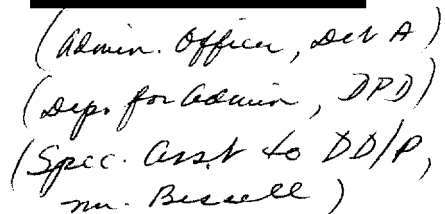 (Admin. Officer, Det A)
(Dep. for Admin, DPD)
(Spec. Asst to DD/P,
Mr. Bissell)